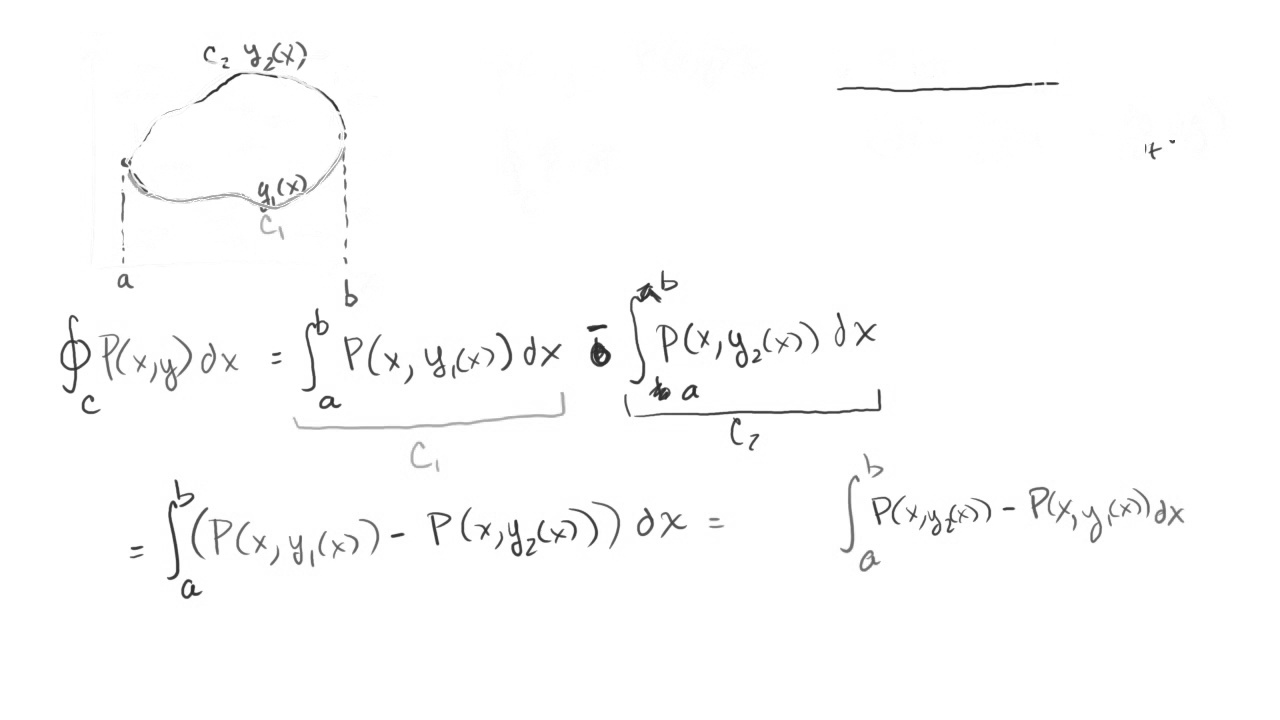 C₂ y₂(x)
y₁(x)
C₁
a b
∮_C P(x,y) dx = ∫_a^b P(x, y₁(x)) dx - ∫_a^b P(x, y₂(x)) dx
C₁ C₂
= ∫_a^b (P(x, y₁(x)) - P(x, y₂(x))) dx = ∫_a^b P(x, y₂(x)) - P(x, y₁(x)) dx